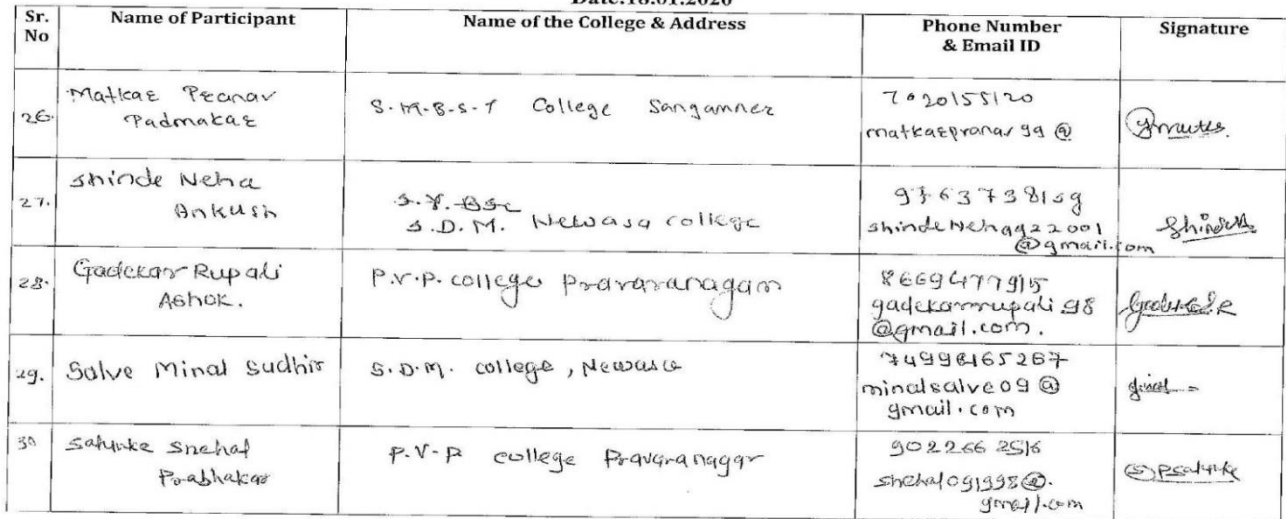 Date:18.01.2020
Sr. No
Name of Participant
Name of the College & Address
Phone Number & Email ID
Signature
26.
Matkar Pranav
Padmakar
S.M.B.S.T College Sangamner
7020155120
matkarpranav99@
27.
Shinde Neha
Ankush
S.Y. BSc
S.D.M. Newasa college
9763738159
shindeNeha
@gmail.com
28.
Gadekar Rupali
Ashok.
P.V.P. college Pravaranagar
8669477915
gadekarrupali98
@gmail.com.
29.
Salve Minal Sudhir
S.D.M. college, Newasa
minalsalve09@
gmail.com
30
Salunke Snehal
Prabhakar
P.V.P college Pravaranagar
snehal091998@.
gmail.com